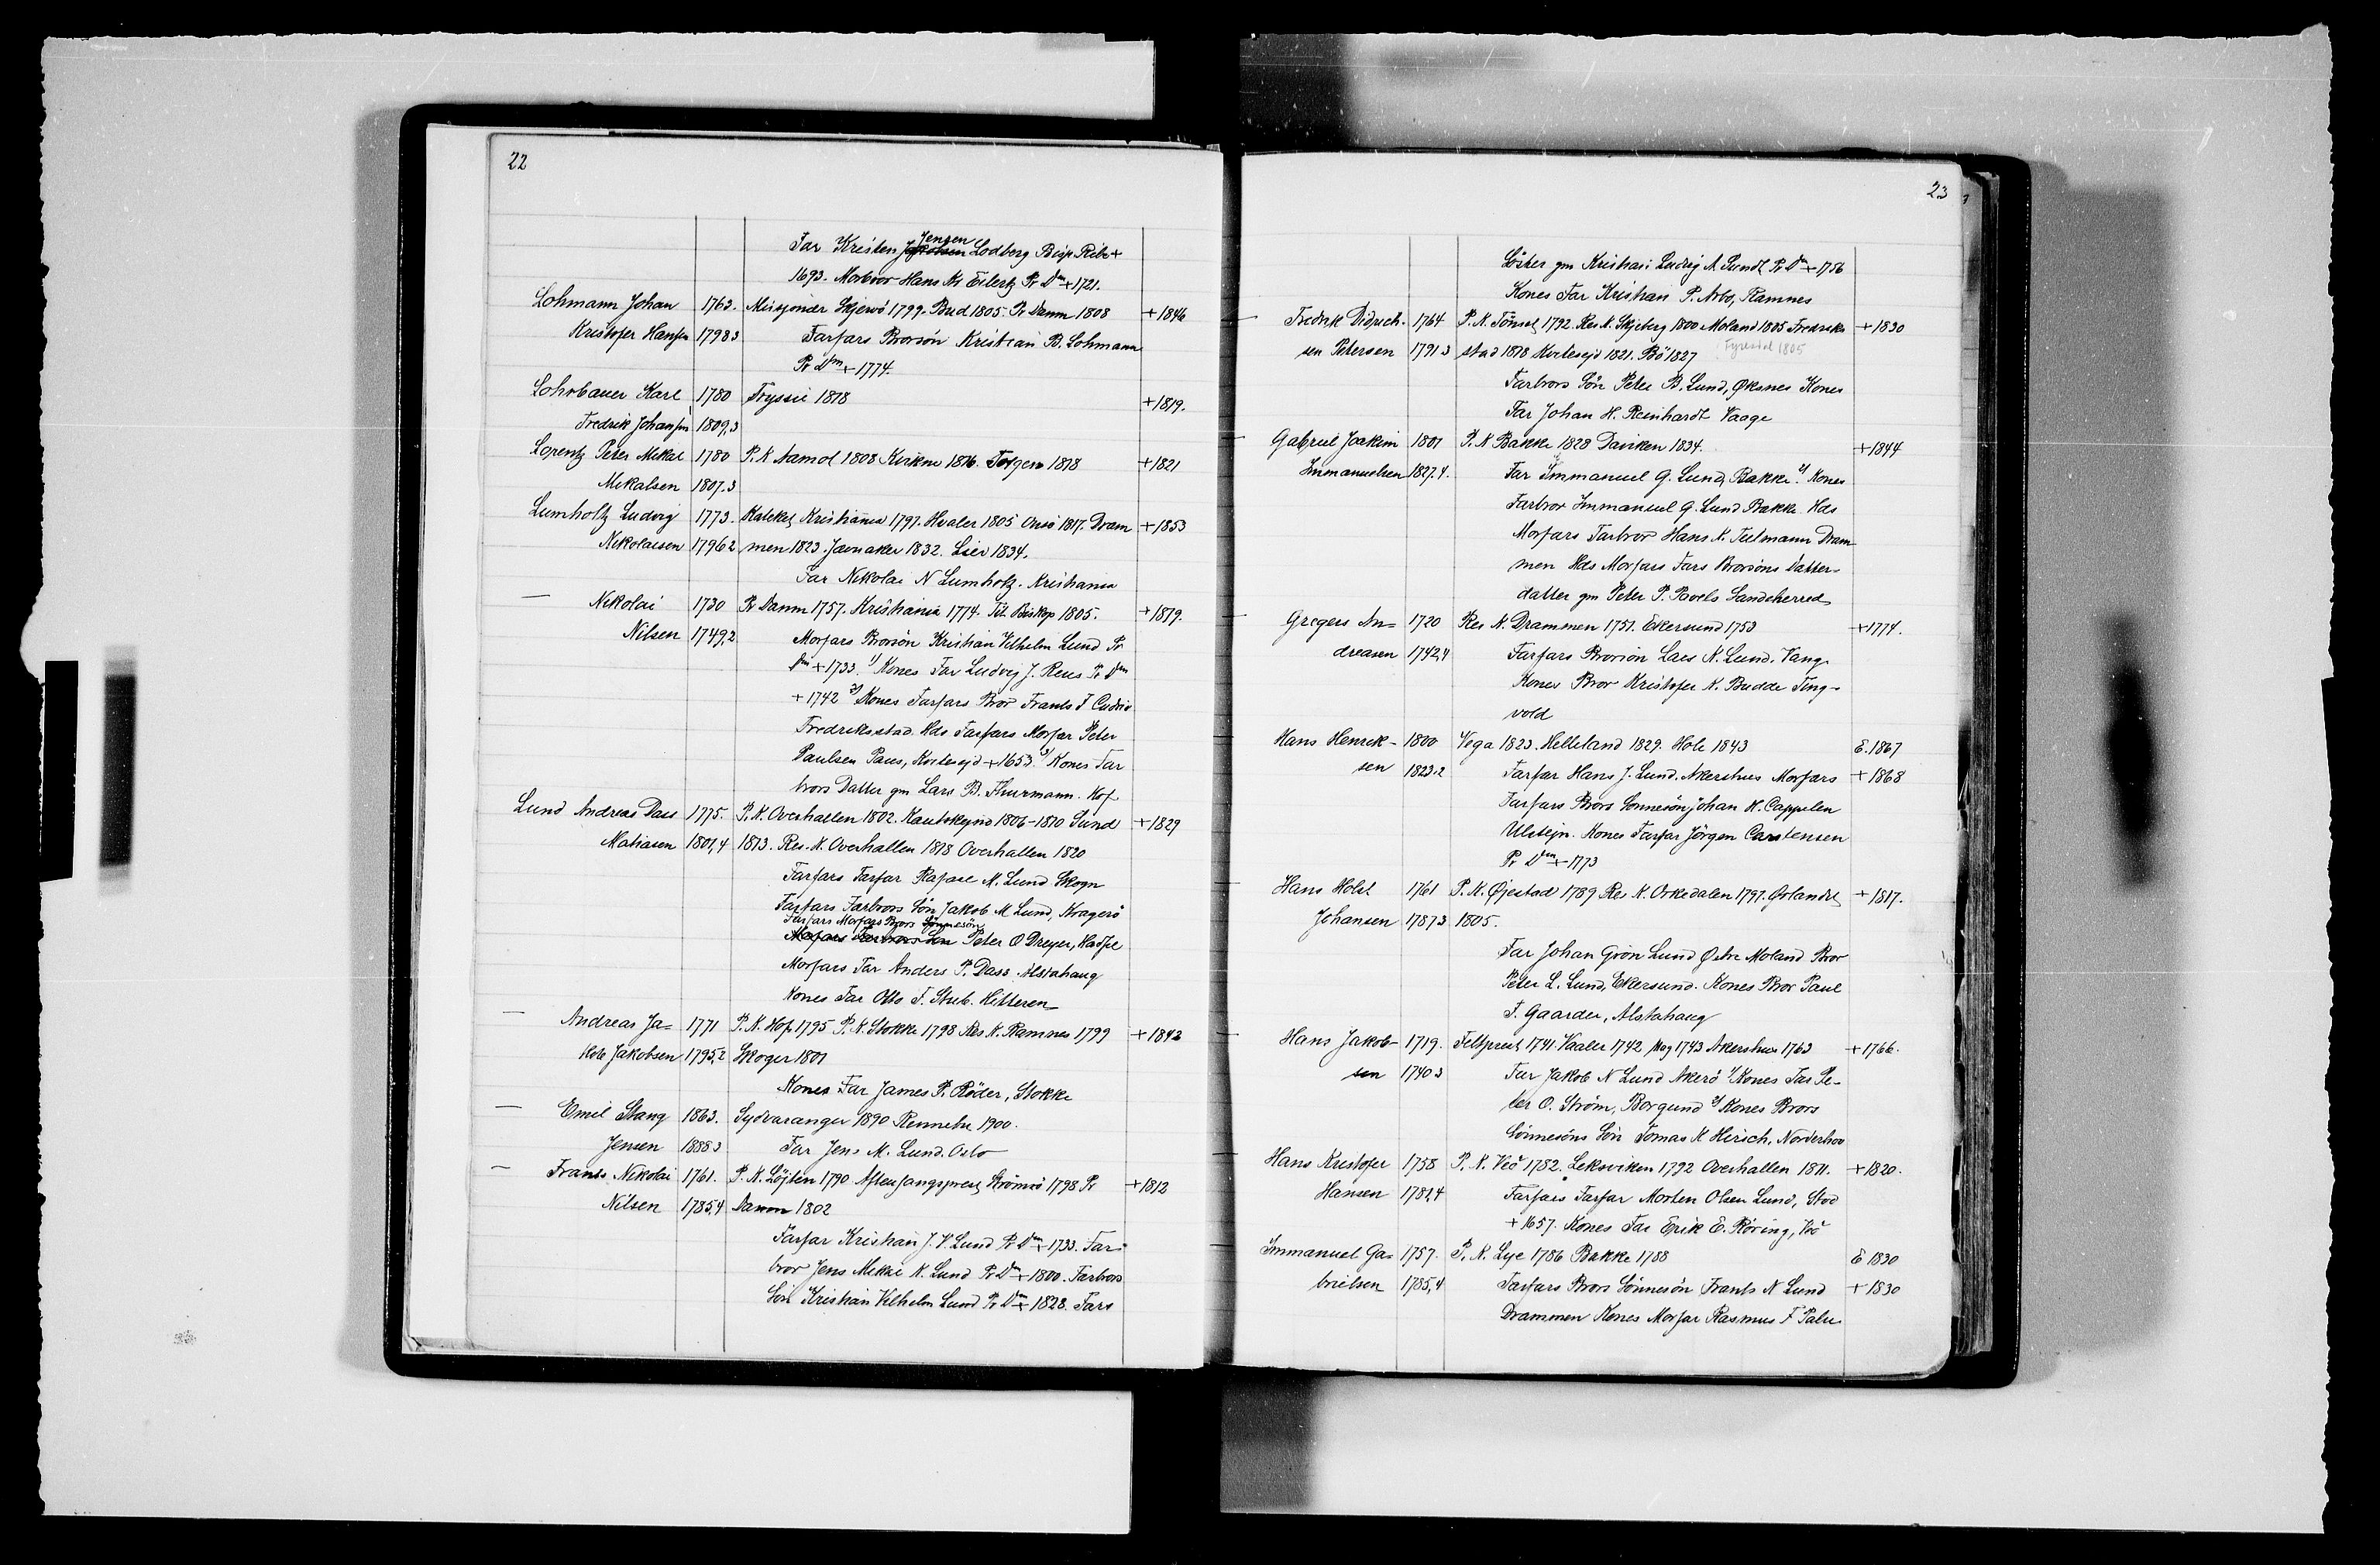 22
Far Kristen Jensen Lodberg Bisp Ribe +
1693. Morbror Hans Kr Eilertz Pr Dm + 1721.
Lohmann Johan 1763. Missjonær Skjervö 1799. Bud 1805. Pr Danm 1808 + 1846
Kristofer Hansen 1798 3 Farfars Brorsön Kristian B. Lohmann
Pr Dm + 1774.
Lohrbauer Karl 1780 Tryssil 1818 + 1819.
Fredrik Johansen 1809,3
Lorentz Peter Mikal 1780 P. K Aamot 1808 Kirkne 1816. 1818 + 1821
Mikalsen 1807.3
Lumholtz Ludvig 1773. Kateket Kristiania 1797. Hvaler 1805 Onsö 1817. Dram + 1853
Nikolaisen 1796 2 men 1823. Jevnaker 1832. Lier 1834.
Far Nikolai N Lumholtz. Kristiania
— Nikolai 1730 Pr Danm 1757. Kristiania 1774. Tit. Biskop 1805. + 1819.
Nilsen 1749,2 Morfars Brorsön Kristian Vilhelm Lund Pr
Dm + 1733. 1) Kones Far Ludvig J. Reus Pr Dm
+ 1742 2) Kones Farfars Bror Frants F Cudrio
Fredriksstad. Hds Farfars Morfar Peter
Paulsen Paus, Kvitesejd + 1653. 3) Kones Far
brors Datter gm Lars B. Thurmann. Hof
Lund Andreas Dass 1775. P. K. Overhallen 1802. Kautokejno 1806-1810 Sund + 1829
Matiasen 1801,4 1813. Res. K. Overhallen 1818 Overhallen 1820
Farfars Farfar Rafael M. Lund Skogn
Farfars Farbrors Sön Jakob M Lund, Kragerö
Farfars Morfars Brors Sönnesön
Morfars Farbrors Sön Peter O Dreyer, Hadsel
Morfars Far Anders P. Dass Alstahaug
Kones Far Otto F. Stub. Hitteren
— Andreas Ja= 1771 P. K. Hof 1795 P. K. Stokke 1798 Res K. Ramnes 1799 + 1842
kob Jakobsen 1795,2 Skoger 1801
Kones Far James P. Röder, Stokke
— Emil Stang 1863. Sydvaranger 1890 Rennebu 1900.
Jensen 1888 3 Far Jens M. Lund. Oslo
— Frants Nikolai 1761. P. K. Löjten 1790 Aftensangsprest Strömsö 1798 Pr + 1812
Nilsen 1785,4 Danm 1802
Farfar Kristian J. V. Lund Pr Dm + 1733. Far=
bror Jens Mikkel K. Lund Pr Dm + 1800. Farbrors
Sön Kristian Vilhelm Lund Pr Dm + 1828. Fars
23
Söster gm Kristian Ludvig A Sundt Pr Dm + 1756
Kones Far Kristian P. Arbo, Ramnes
— Fredrik Didrich- 1764 P. K. Tönset 1792. Res K. Skjeberg 1800 Moland 1805 Fredriks + 1830
sen Petersen 1791 3 stad 1818 Kvitesejd 1821. Bö 1827 Fyresdal 1805
Farbrors Sön Peter B. Lund, Øksnes Kones
Far Johan H. Reinhardt Vaage
— Gabriel Joakim 1801 P. K Bakke 1828 Daviken 1834. + 1844
Immanuelsen 1827.4. Far Immanuel G. Lund, Bakke. 2) Kones
Farbror Immanuel G. Lund Bakke. Hds
Morfars Farbror Hans N. Tellmann Dram
men Hds Morfars Fars Brorsöns Datter-
datter gm Peter P. Pavels Sandeherred
— Gregers An= 1720 Res K. Drammen 1751. Ekersund 1753 + 1774.
dreasen 1742,4 Farfars Brorsön Lars N. Lund. Vang
Kones Bror Kristofer K. Budde Ting-
vold
Hans Henrik- 1800 Vega 1823. Helleland 1829. Hole 1843 E. 1867
sen 1823.2 Farfar Hans J. Lund. Akershus Morfars + 1868
Farfars Brors Sönnesön Johan H. Cappelen
Ulstejn. Kones Farfar Jörgen Carstensen
Pr Dm + 1773
— Hans Holst 1761 P. K. Øjestad 1789 Res K. Orkedalen 1797. Ørlandet + 1817.
Johansen 1787,3 1805.
Far Johan Grön Lund Østre Moland Bror
Peter L. Lund, Ekersund. Kones Bror Paul
F. Gaarder, Alstahaug
— Hans Jakob- 1719. Feltprest 1741. Vaaler 1742 1743 Akershus 1763 + 1766.
sen 1740 3 Far Jakob N Lund Akerö 1) Kones Far Pe-
ter O. Ström, Borgund 2) Kones Brors
Sönnesöns Sön Tomas K Hirsch, Norderhov
Hans Kristofer 1758 P. K. Veö 1782. Leksviken 1792 Overhallen 1811. + 1820.
Hansen 1781,4 Farfars Farfar Morten Olsen Lund, Stod
+ 1657. Kones Far Erik E. Röring, Veö
Immanuel Ga= 1757. P. K. Lye 1786 Bakke 1788 E 1830
brielsen 1785,4 Farfars Brors Sönnesön Frants N Lund + 1830
Drammen Kones Morfar Rasmus F Palu